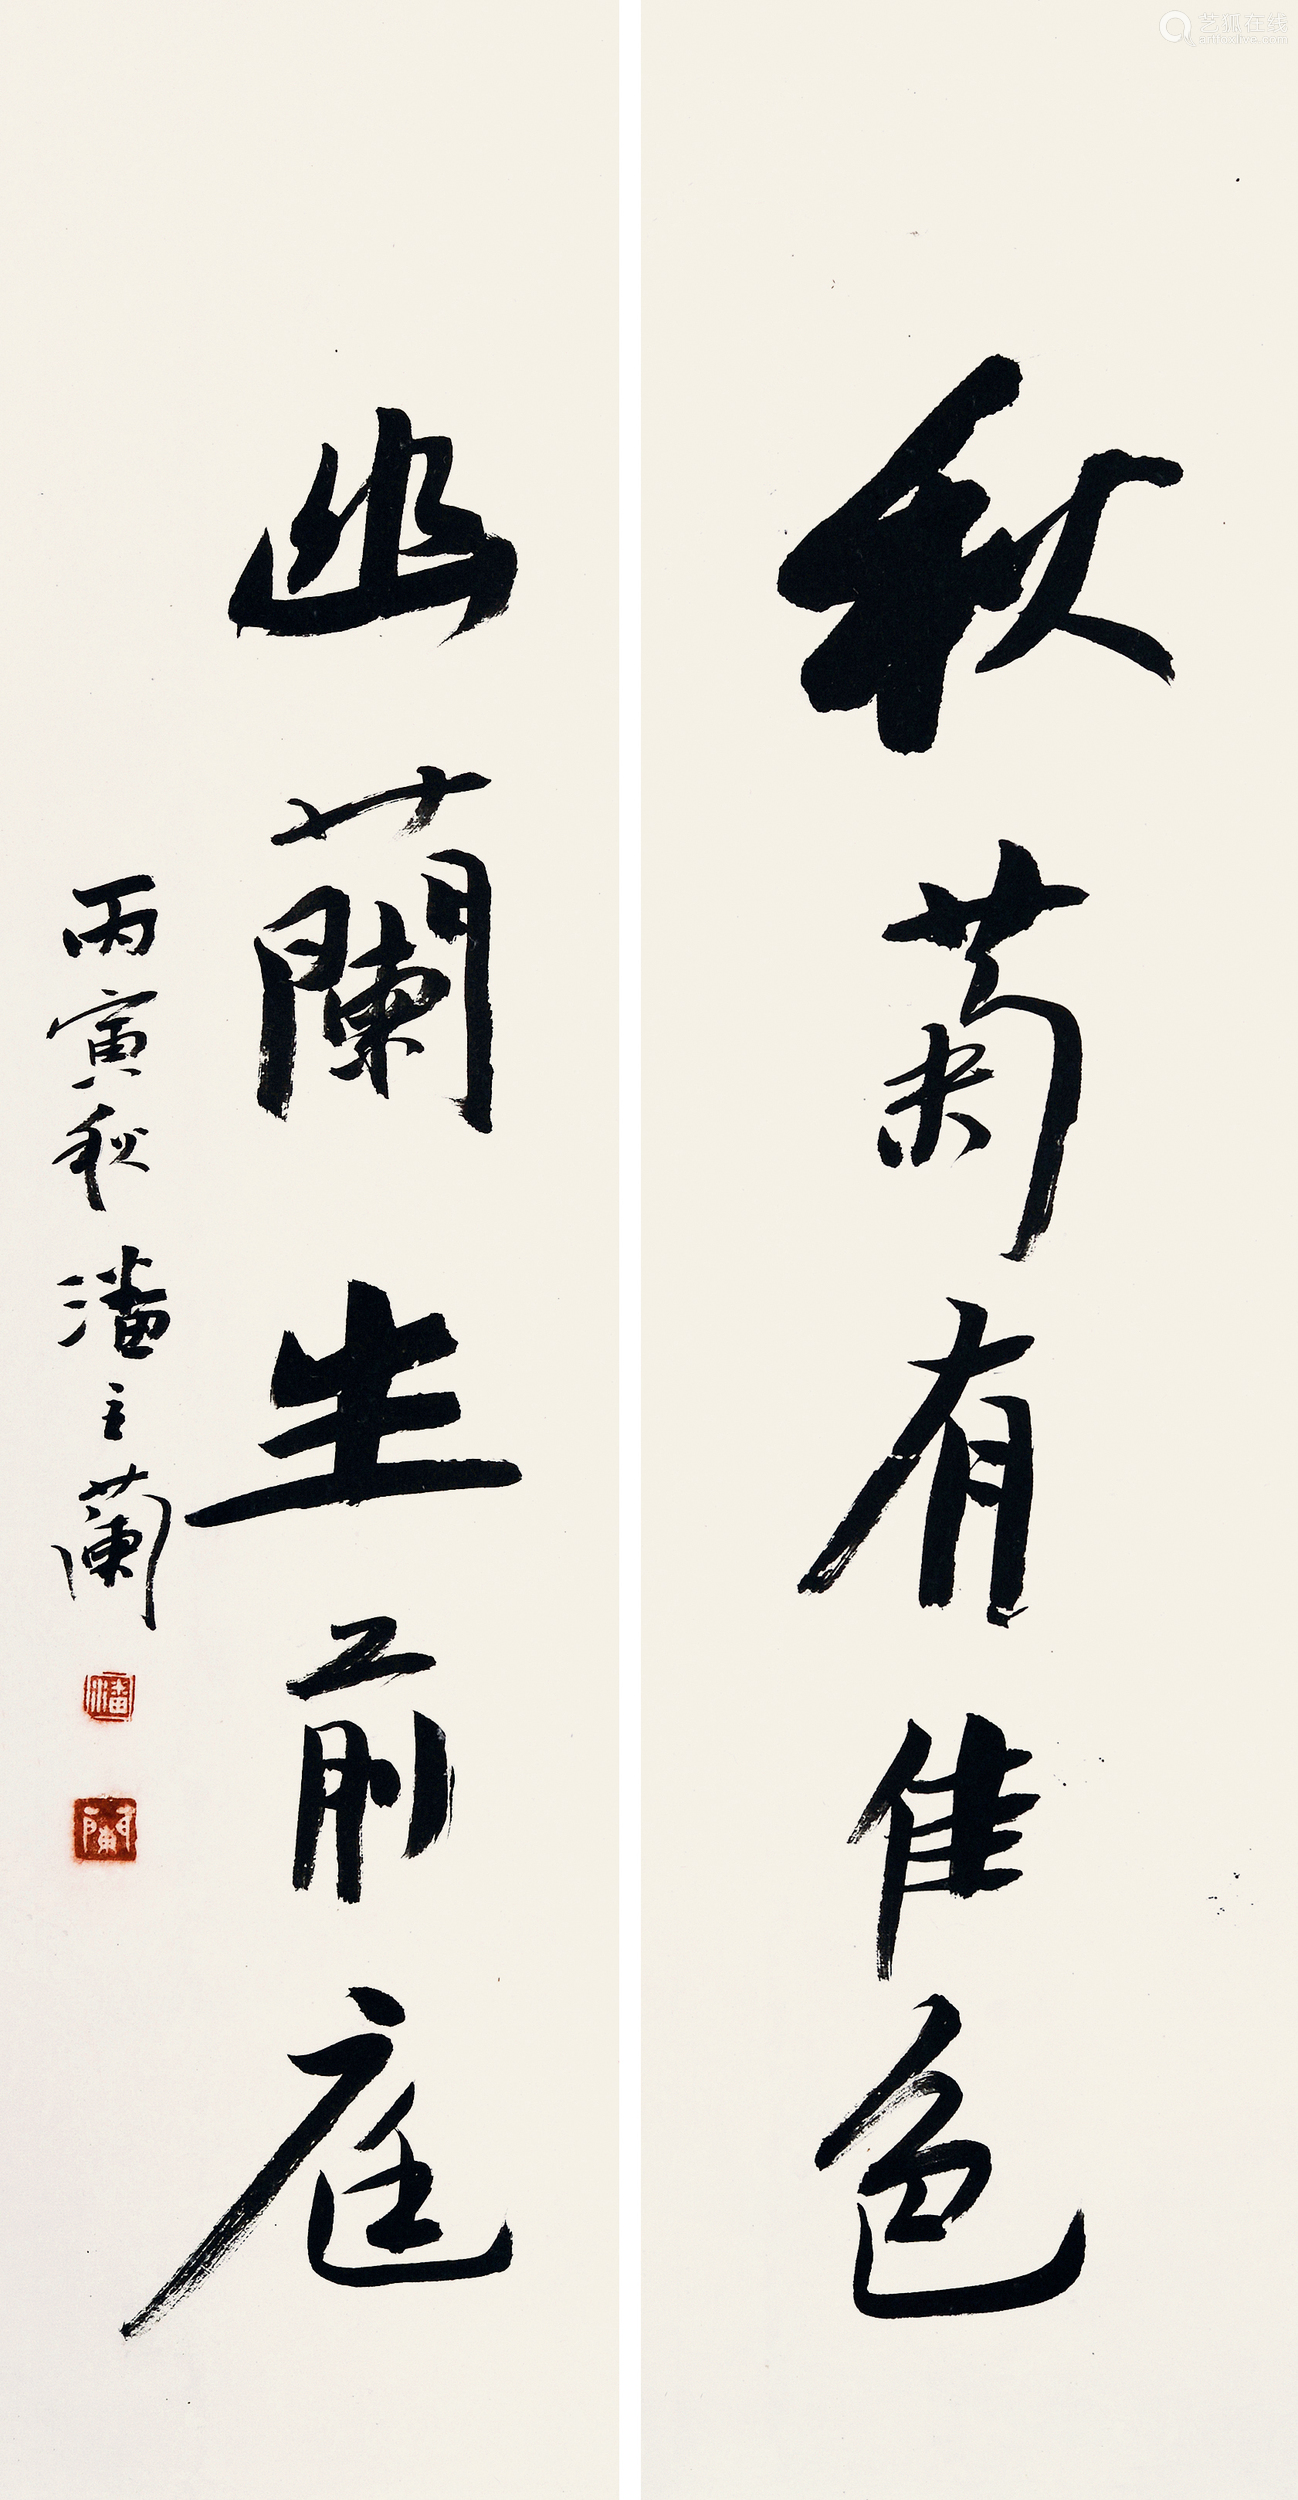 秋菊有佳色
幽蘭生前庭
丙寅秋潘主蘭
潘
蘭
艺狐在线